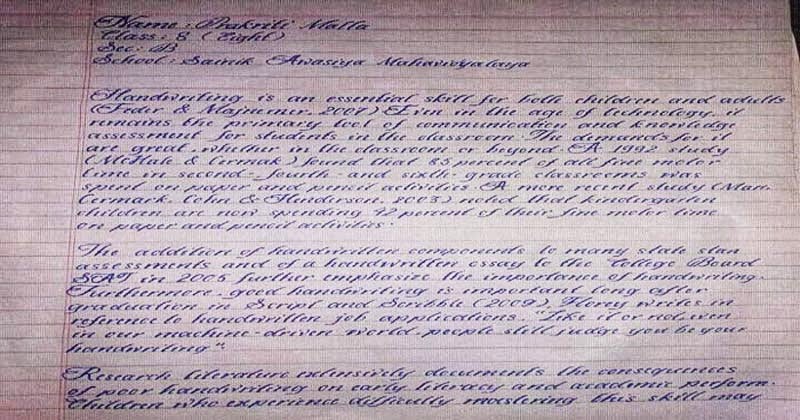 Name : Prakriti Malla
Class : 8 ( Eight )
Sec : B
School : Sainik Awasiya Mahavidyalaya
Handwriting is an essential skill for both children and adults
(Feder & Majnemer, 2007) Even in the age of technology, it
remains the primary tool of communication and knowledge
assessment for students in the classroom. The demands for it
are great, whether in the classroom or beyond. A 1992 study
(McHale & Cermak) found that 85 percent of all fine motor
time in second-, fourth- and sixth- grade classrooms was
spent on paper and pencil activities. A more recent study (Marr,
Cermark, Cohn & Henderson, 2003) noted that kindergarten
children are now spending 42 percent of their fine motor time
on paper and pencil activities.
The addition of handwritten components to many state stan
assessments and of a handwritten essay to the College Board
SAT in 2005 further emphasize the importance of handwriting.
Furthermore, good handwriting is important long after
graduation in Script and Scribble (2009), Florey writes in
reference to handwritten job applications, "Like it or not, even
in our machine-driven world, people still judge you be your
handwriting".
Research literature extensively documents the consequences
of poor handwriting on early literacy and academic perform.
Children who experience difficulty mastering this skill may